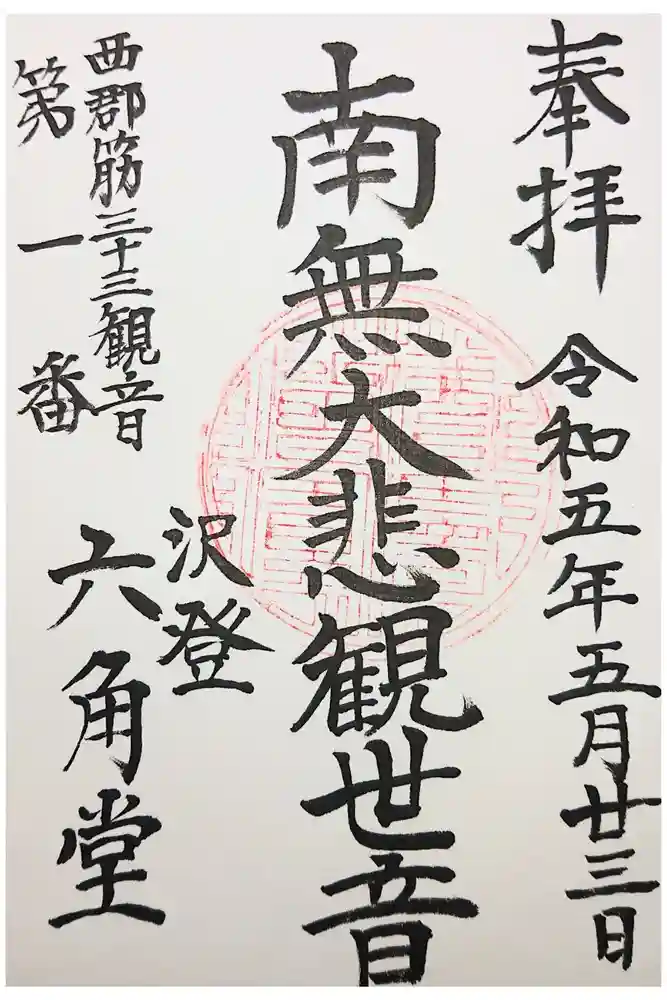 奉拝
令和五年五月廿三日
南無大悲観世音
西郡筋三十三観音
第一番
沢登
六角堂